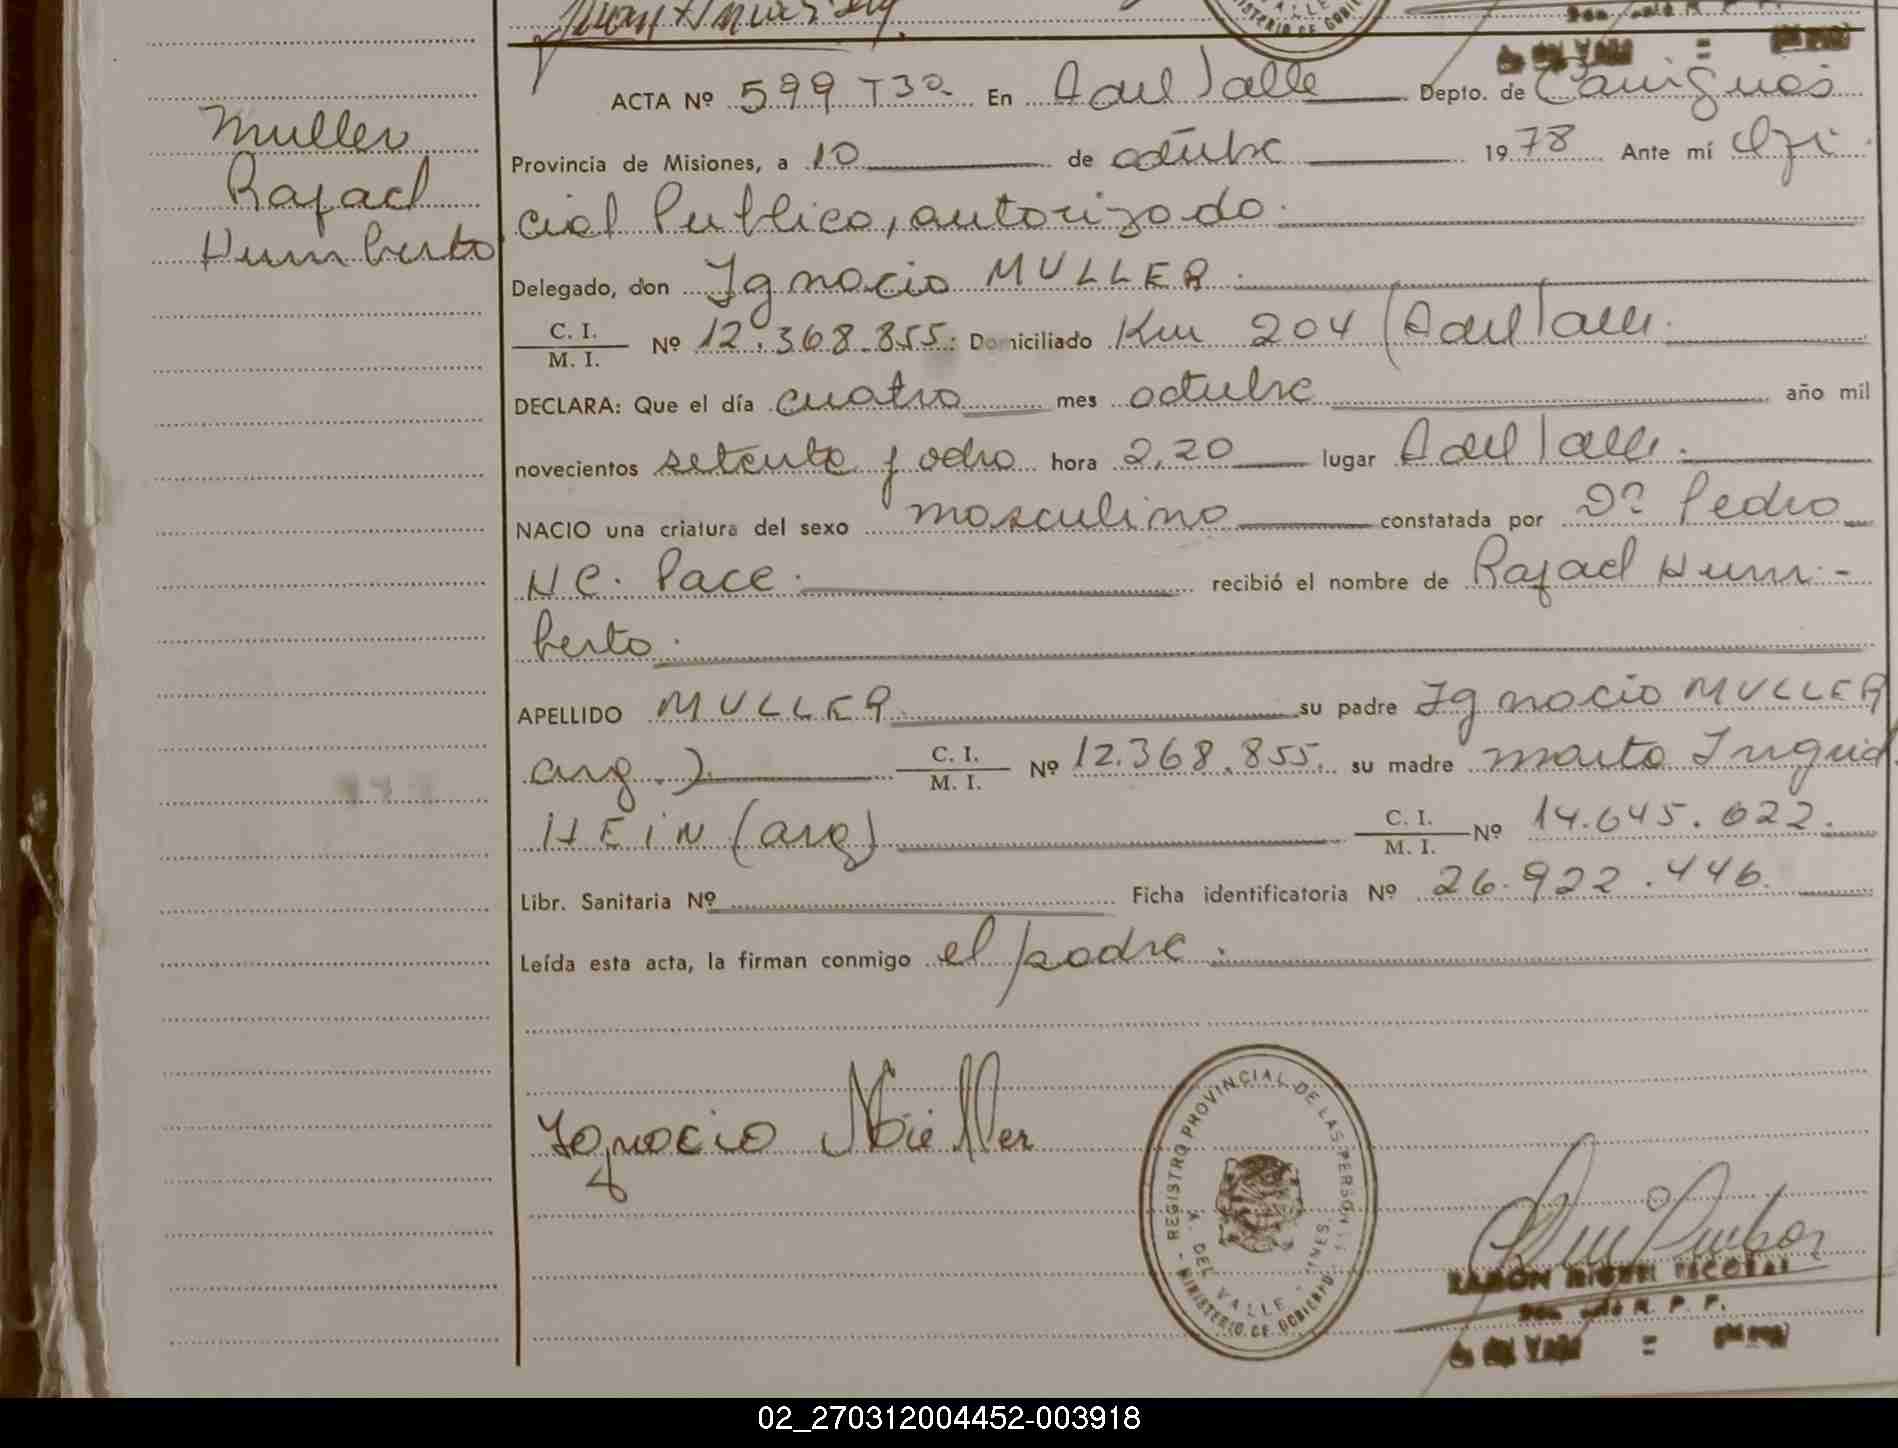 MINISTERIO DE GOBIE
VALLE
ACTA Nº 599 T3º En A del Valle Depto. de Cainguás
Muller
Provincia de Misiones, a 10 de octubre 1978 Ante mí Ofi
Rafael
cial Publico, autorizado.
Humberto
Delegado, don Ignacio MULLER.
C. I.
M. I.
Nº 12.368.855: Domiciliado Km 204 (A del Valle.
DECLARA: Que el día cuatro mes octubre año mil
novecientos setenta y ocho hora 2,20 lugar A del Valle.
NACIO una criatura del sexo masculino constatada por Dº Pedro
N C. Pace. recibió el nombre de Rafael Hum-
berto.
APELLIDO MULLER su padre Ignacio MULLER
arg.). C. I.
M. I.
Nº 12.368.855. su madre Marta Ingrid
HEIN (arg) C. I.
M. I.
Nº 14.645.022.
Libr. Sanitaria Nº Ficha identificatoria Nº 26.922.446.
Leída esta acta, la firman conmigo el padre.
Ignacio Müller
REGISTRO PROVINCIAL DE LAS PERSONAS
A. DEL VALLE - MNES.
MINISTERIO DE GOBIERNO
RAMÓN MIGUEL ESCOBAR
R. P. P.
A. del Valle = (Mnes)
02_270312004452-003918